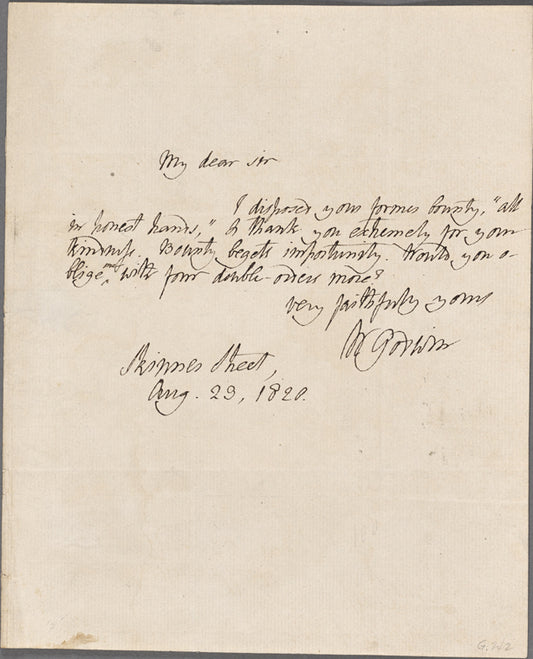 My dear sir
I disposed your former bounty, "all
in honest hands," & thank you extremely for your
kindness. Bounty begets importunity. Would you o-
blige me with four double-orders more?
very faithfully yours
W Godwin
Skinner Street,
Aug. 23, 1820.